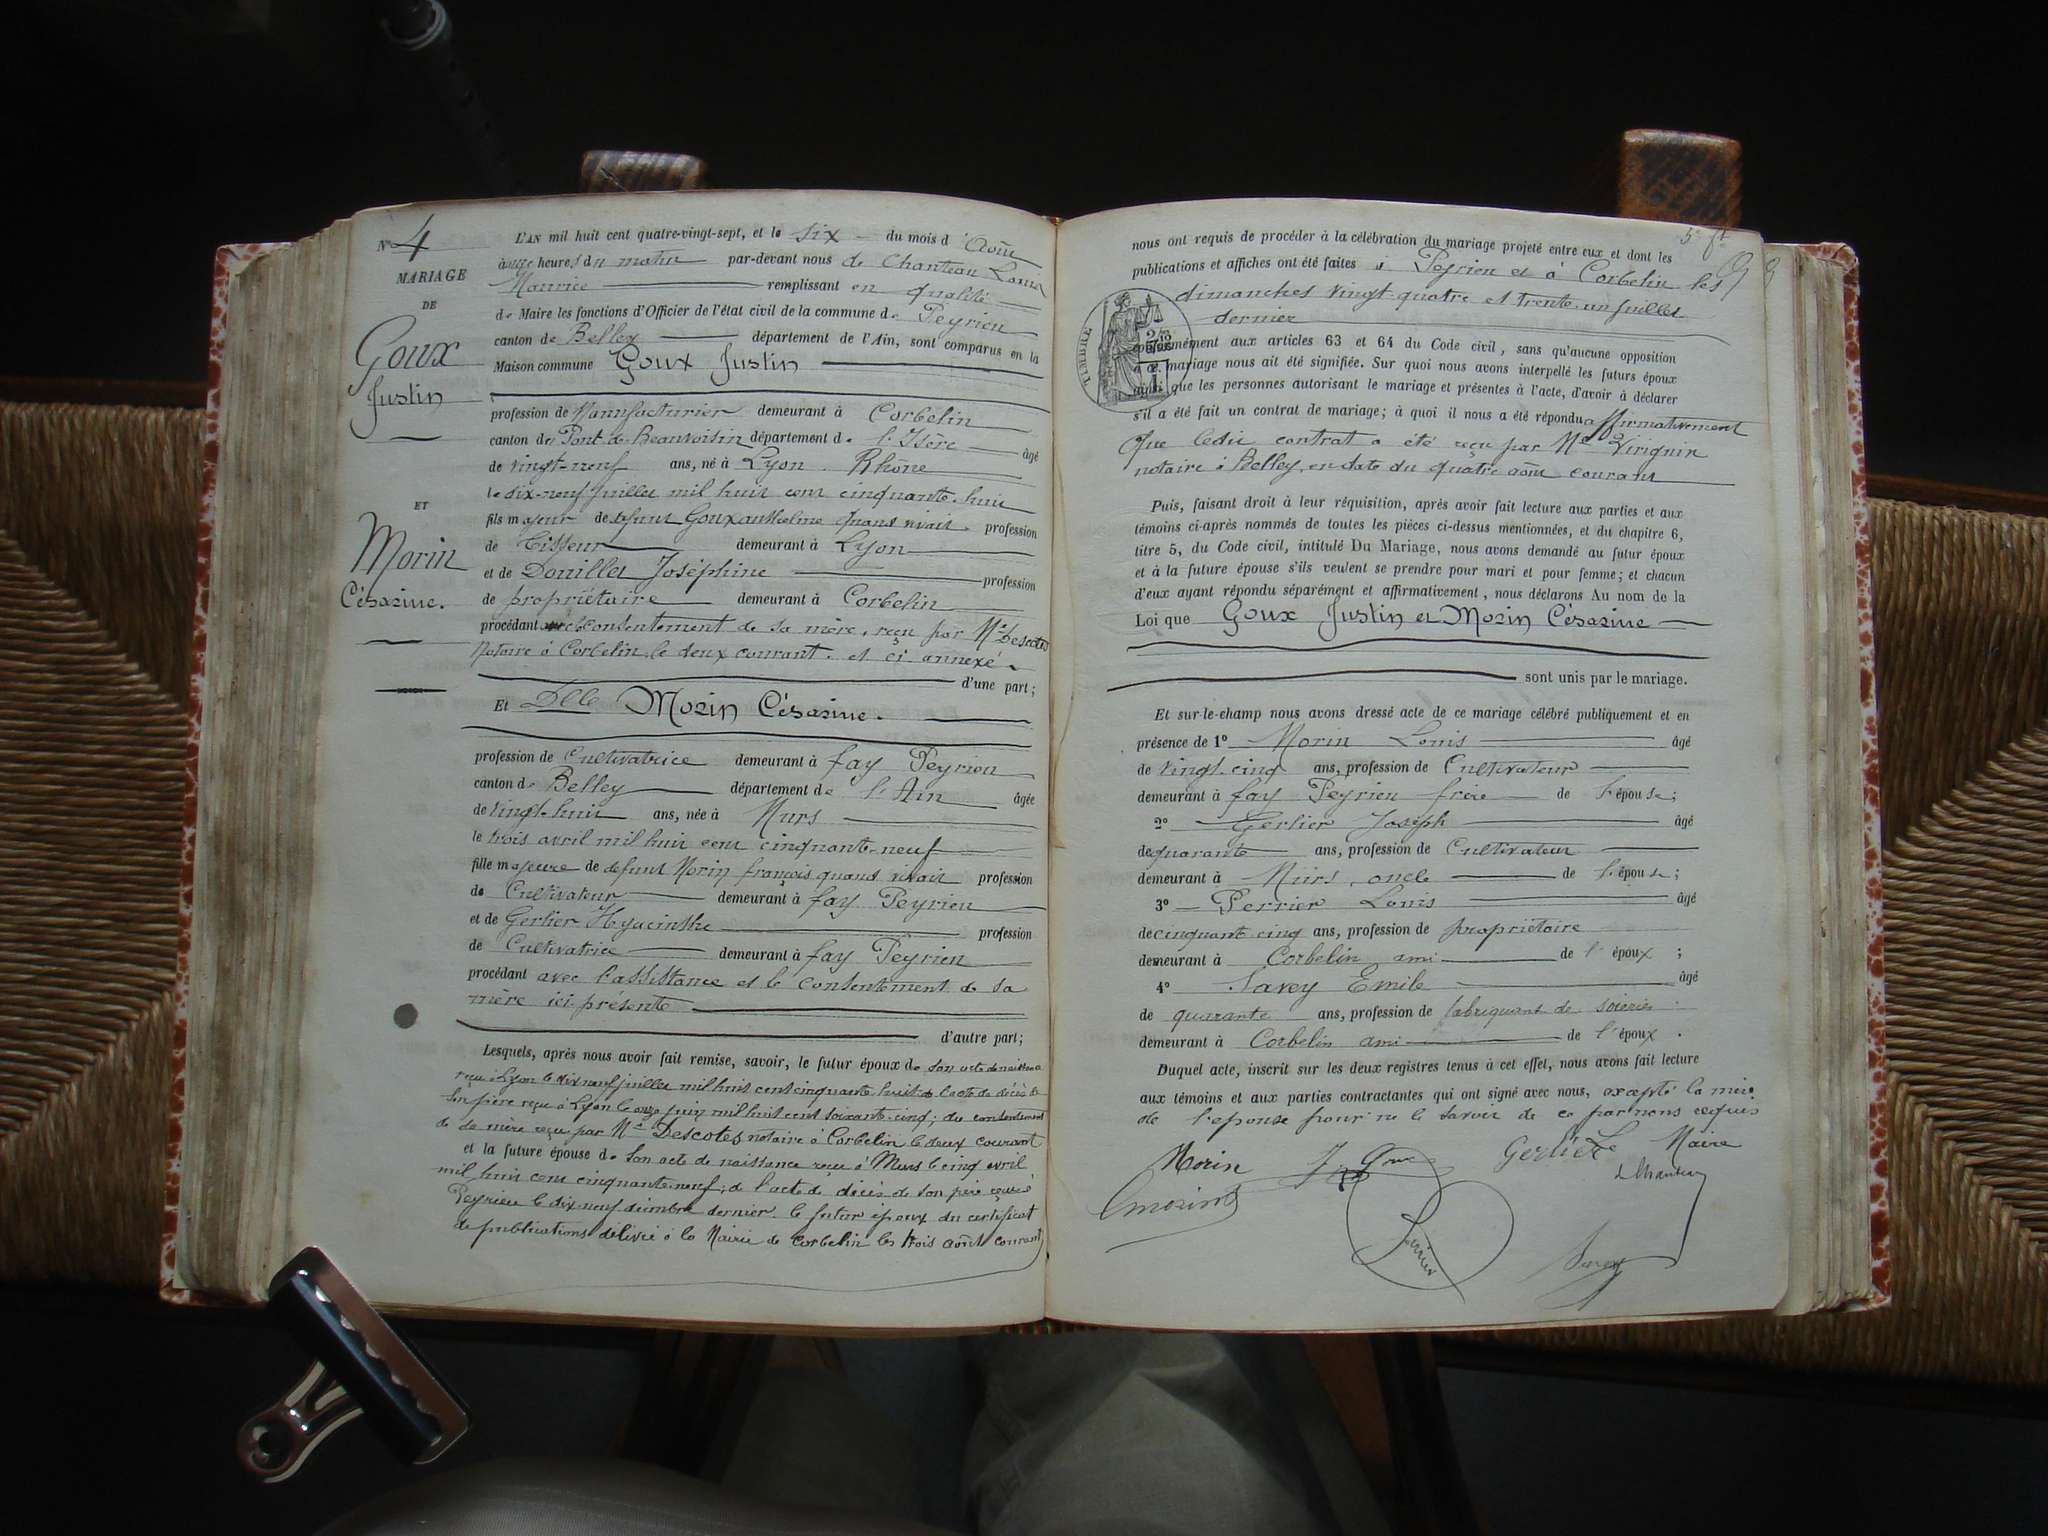 N° 4
MARIAGE
DE
Goux
Justin
ET
Morin
Césarine.
L'AN mil huit cent quatre-vingt-sept, et le six du mois d'Août
à onze heures du matin par-devant nous de Chanteau Louis
Maurice remplissant en qualité
de Maire les fonctions d'Officier de l'état civil de la commune de Peyrieu
canton de Belley département de l'Ain, sont comparus en la
Maison commune Goux Justin
profession de Manufacturier demeurant à Corbelin
canton de Pont-de-Beauvoisin département de l'Isère âgé
de vingt-neuf ans, né à Lyon Rhône
le dix-neuf juillet mil huit cent cinquante-huit
fils majeur de défunt Goux anthelme quand vivait profession
de Tisseur demeurant à Lyon
et de Douillet Joséphine profession
de propriétaire demeurant à Corbelin
procédant avec le consentement de sa mère, reçu par Me Descotes
Notaire à Corbelin, le deux courant et ci annexé.
d'une part;
Et Delle Morin Césarine.
profession de Cultivatrice demeurant à fay Peyrieu
canton de Belley département de l'Ain âgée
de vingt-huit ans, née à Murs
le trois avril mil huit cent cinquante-neuf
fille majeure de défunt Morin françois quand vivait profession
de Cultivateur demeurant à fay Peyrieu
et de Gerlier Hyacinthe profession
de Cultivatrice demeurant à fay Peyrieu
procédant avec l'assistance et le consentement de sa
mère ici présente
d'autre part;
Lesquels, après nous avoir fait remise, savoir, le futur époux de son acte de naissance
reçu à Lyon le dix neuf juillet mil huit cent cinquante huit de l'acte de décès de
son père reçu à Lyon le onze juin mil huit cent soixante-cinq; du consentement
de sa mère reçu par Me Descotes notaire à Corbelin le deux courant
et la future épouse de son acte de naissance reçu à Murs le cinq avril
mil huit cent cinquante-neuf; de l'acte de décès de son père reçu à
Peyrieu le dix-neuf décembre dernier. le futur époux du certificat
de publications délivré à la Mairie de Corbelin les trois août courant
5e ft
nous ont requis de procéder à la célébration du mariage projeté entre eux et dont les
publications et affiches ont été faites à Peyrieu et à Corbelin les
dimanches vingt-quatre et trente-un juillet
dernier
TIMBRE
conformément aux articles 63 et 64 du Code civil, sans qu'aucune opposition
à ce mariage nous ait été signifiée. Sur quoi nous avons interpellé les futurs époux
ainsi que les personnes autorisant le mariage et présentes à l'acte, d'avoir à déclarer
s'il a été fait un contrat de mariage; à quoi il nous a été répondu affirmativement
Que ledit contrat a été reçu par Me Virignin
notaire à Belley, en date du quatre août courant
Puis, faisant droit à leur réquisition, après avoir fait lecture aux parties et aux
témoins ci-après nommés de toutes les pièces ci-dessus mentionnées, et du chapitre 6,
titre 5, du Code civil, intitulé Du Mariage, nous avons demandé au futur époux
et à la future épouse s'ils veulent se prendre pour mari et pour femme; et chacun
d'eux ayant répondu séparément et affirmativement, nous déclarons Au nom de la
Loi que Goux Justin et Morin Césarine
sont unis par le mariage.
Et sur-le-champ nous avons dressé acte de ce mariage célébré publiquement et en
présence de 1° Morin Louis âgé
de vingt-cinq ans, profession de Cultivateur
demeurant à fay Peyrieu frère de l'épouse;
2° Gerlier Joseph âgé
de quarante ans, profession de Cultivateur
demeurant à Murs, oncle de l'épouse;
3° Perrier Louis âgé
de cinquant cinq ans, profession de propriétaire
demeurant à Corbelin ami de l'époux;
4° Savey Emile âgé
de quarante ans, profession de fabriquant de soieries
demeurant à Corbelin ami de l'époux.
Duquel acte, inscrit sur les deux registres tenus à cet effet, nous avons fait lecture
aux témoins et aux parties contractantes qui ont signé avec nous, excepté la mère
de l'épouse pour ne le savoir de ce par nous requis
Morin J Goux Gerlier Le Maire
C morin Perrier Savey